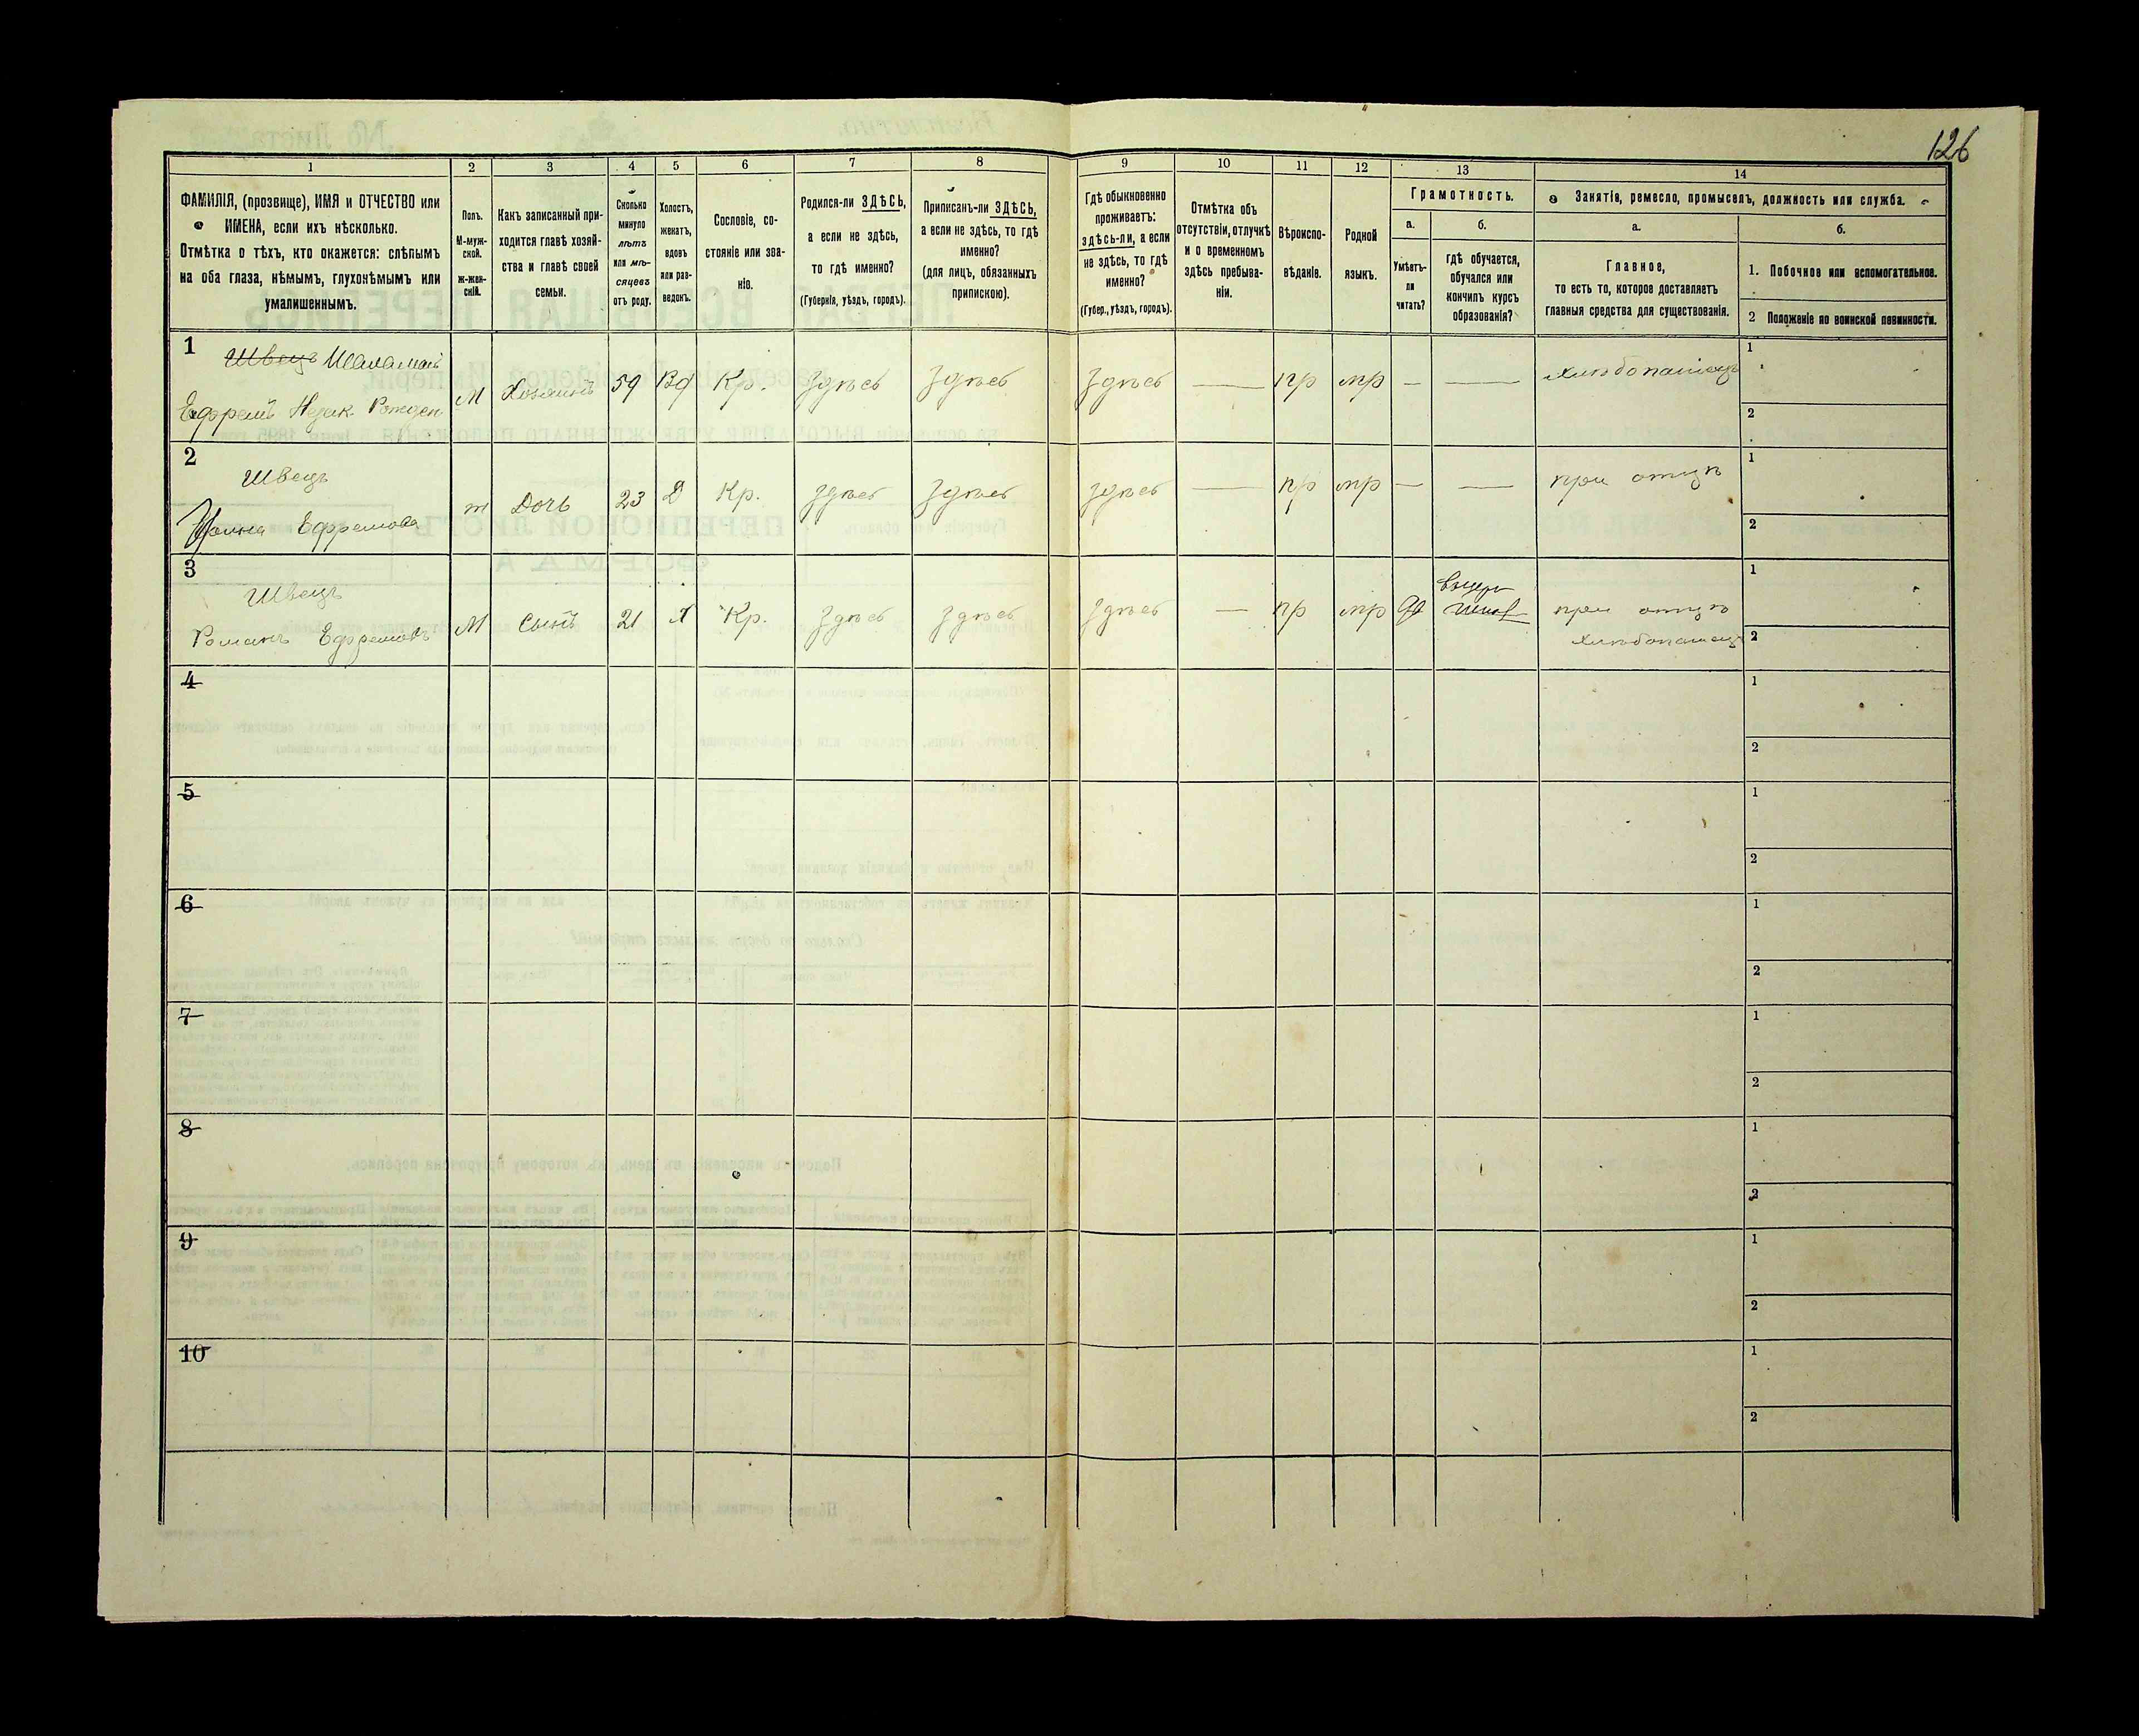 126
1
ФАМИЛІЯ, (прозвище), ИМЯ и ОТЧЕСТВО или
ИМЕНА, если ихъ нѣсколько.
Отмѣтка о тѣхъ, кто окажется: слѣпымъ
на оба глаза, нѣмымъ, глухонѣмымъ или
умалишеннымъ.
2
Полъ.
М-муж-
ской.
ж-жен-
скій.
3
Какъ записанный при-
ходится главѣ хозяй-
ства и главѣ своей
семьи.
4
Сколько
минуло
лѣтъ
или мѣ-
сяцевъ
отъ роду.
5
Холостъ,
женатъ,
вдовъ
или раз-
веденъ.
6
Сословіе, со-
стояніе или зва-
ніе.
7
Родился-ли ЗДѢСЬ,
а если не здѣсь,
то гдѣ именно?
(Губернія, уѣздъ, городъ).
8
Приписанъ-ли ЗДѢСЬ,
а если не здѣсь, то гдѣ
именно?
(для лицъ, обязанныхъ
припискою).
9
Гдѣ обыкновенно
проживаетъ:
здѣсь-ли, а если
не здѣсь, то гдѣ
именно?
(Губер., уѣздъ, городъ).
10
Отмѣтка объ
отсутствіи, отлучкѣ
и о временномъ
здѣсь пребыва-
ніи.
11
Вѣроиспо-
вѣданіе.
12
Родной
языкъ.
13
Грамотность.
а.
Умѣетъ-
ли
читать?
б.
гдѣ обучается,
обучался или
кончилъ курсъ
образованія?
14
Занятіе, ремесло, промыселъ, должность или служба.
а.
Главное,
то есть то, которое доставляетъ
главныя средства для существованія.
б.
1. Побочное или вспомогательное.
2 Положеніе по воинской повинности.
1
Швецъ
Ефремъ
М Хозяинъ 59 Вд Кр. Здѣсь Здѣсь Здѣсь — пр мр — — хлѣбопашецъ
1
2
2
Швецъ
Ефремова
ж Дочь 23 Д Кр. Здѣсь Здѣсь Здѣсь — пр мр — — при отцѣ
1
2
3
Швецъ
Романъ Ефремовъ
М Сынъ 21 Х Кр. Здѣсь Здѣсь Здѣсь — пр мр да
при отцѣ
хлѣбопашецъ
1
2
4
1
2
5
1
2
6
1
2
7
1
2
8
1
2
9
1
2
10
1
2